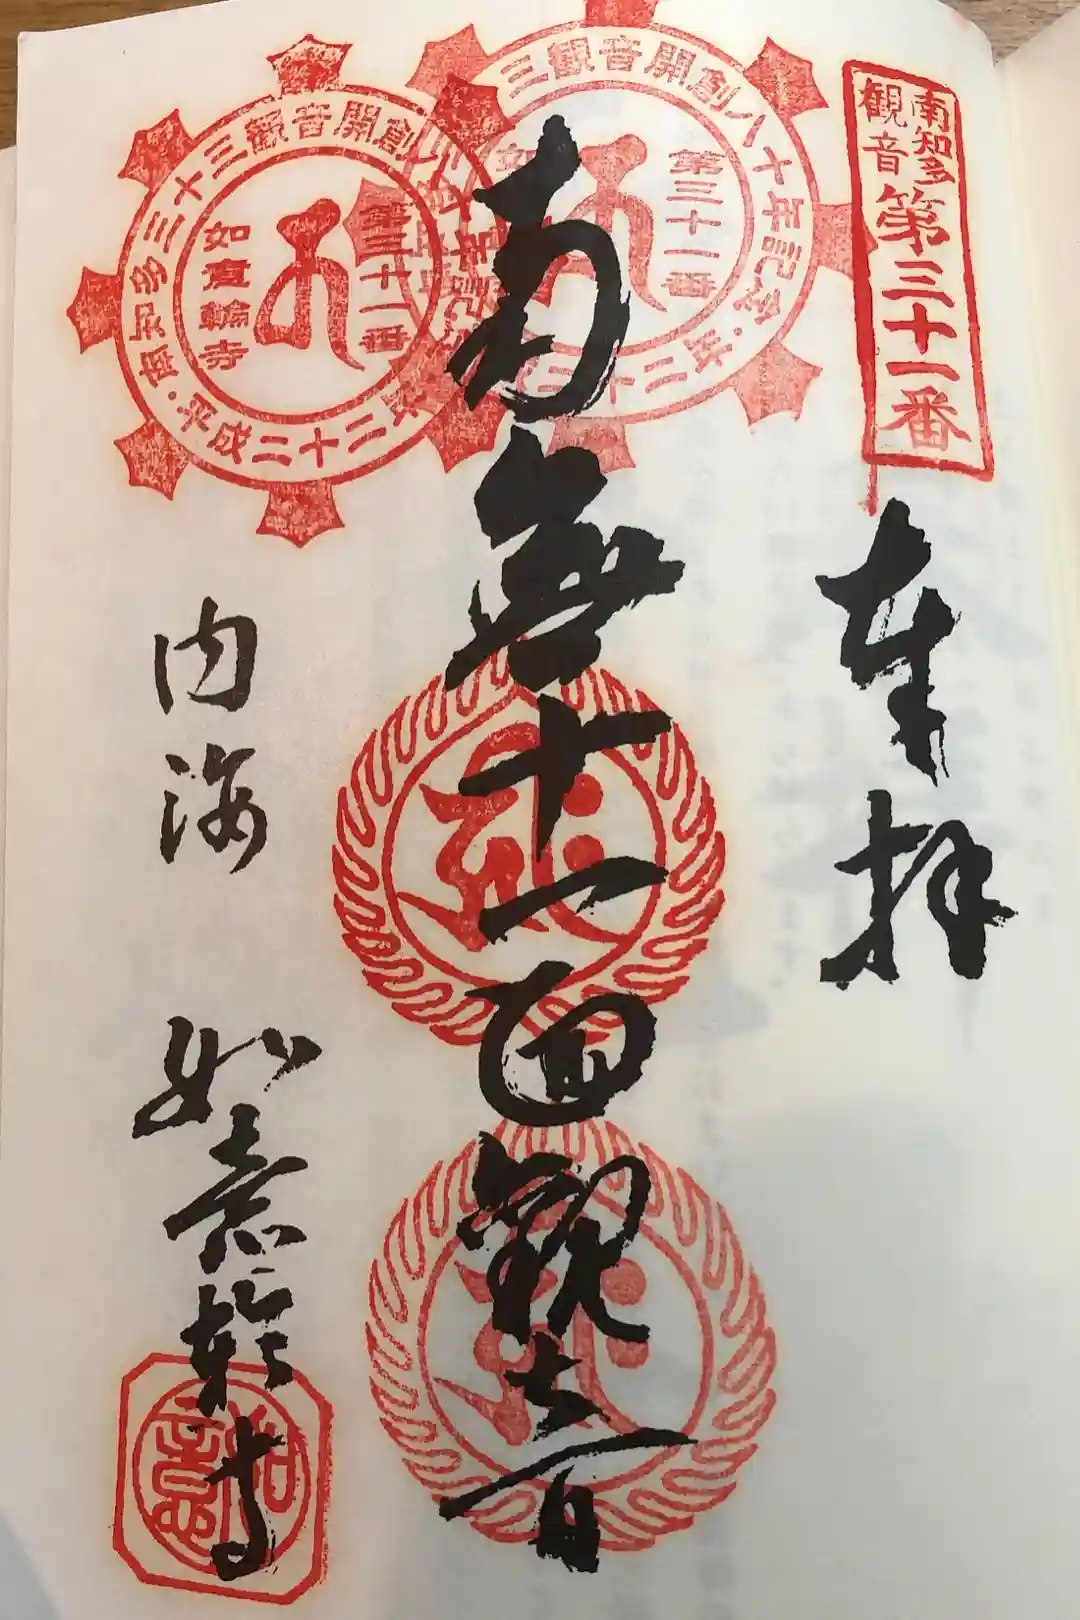 南知多
観音
第三十一番
奉拝
三観音開創八十年記念
第三十一番
南無十一面観世音
南知多三十三観音開創八十年記念・平成二十二年
第三十一番
如意輪寺
内海
如意輪寺
如意